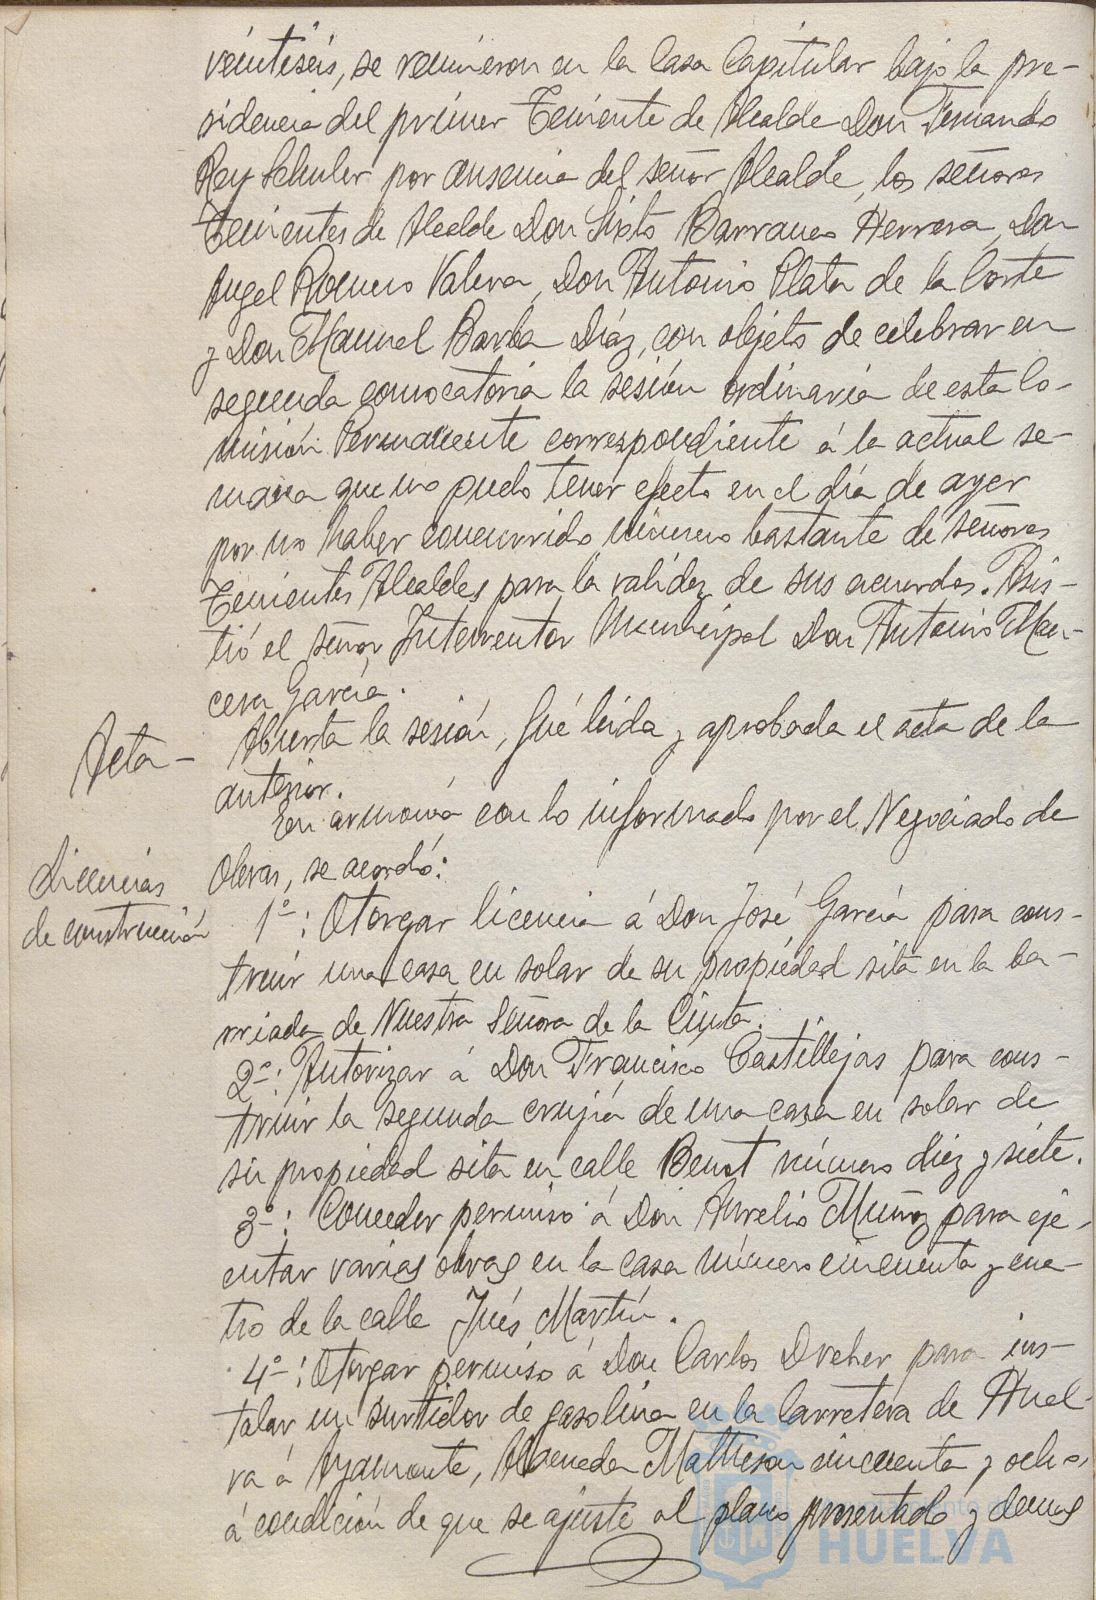 veintiséis, se reunieron en la Casa Capitular bajo la pre-
sidencia del primer Teniente de Alcalde Don Fernando
Rey Schuler por ausencia del señor Alcalde, los señores
Tenientes de Alcalde Don Sixto Barranco Herrera, Don
Angel Romero Valera, Don Antonio Plata de la Corte
y Don Manuel Barba Díaz, con objeto de celebrar en
segunda convocatoria la sesión ordinaria de esta Co-
misión Permanente correspondiente á la actual se-
mana que no pudo tener efecto en el día de ayer
por no haber concurrido número bastante de señores
Tenientes Alcaldes para la validez de sus acuerdos. Asis-
tió el señor Interventor Municipal Don Antonio Man-
cera García.
Acta-
Abierta la sesión, fué leida y aprobada el acta de la
anterior.
En armonía con lo informado por el Negociado de
Obras, se acordó:
Licencias
de construcción
1º: Otorgar licencia á Don José García para cons-
truir una casa en solar de su propiedad sita en la ba-
rriada de Nuestra Señora de la Cinta.
2º: Autorizar á Don Francisco Castillejas para cons-
truir la segunda crujía de una casa en solar de
su propiedad sita en calle Benot número diez y siete.
3º: Conceder permiso á Don Aurelio Muñoz para eje-
cutar varias obras en la casa número cincuenta y cua-
tro de la calle Jués Martín.
4º: Otorgar permiso á Don Carlos Dreher para ins-
talar un surtidor de gasolina en la Carretera de Huel-
va á Ayamonte, Alameda Matheson cincuenta y ocho,
á condición de que se ajuste al plano presentado y demas
Ayuntamiento de
HUELVA